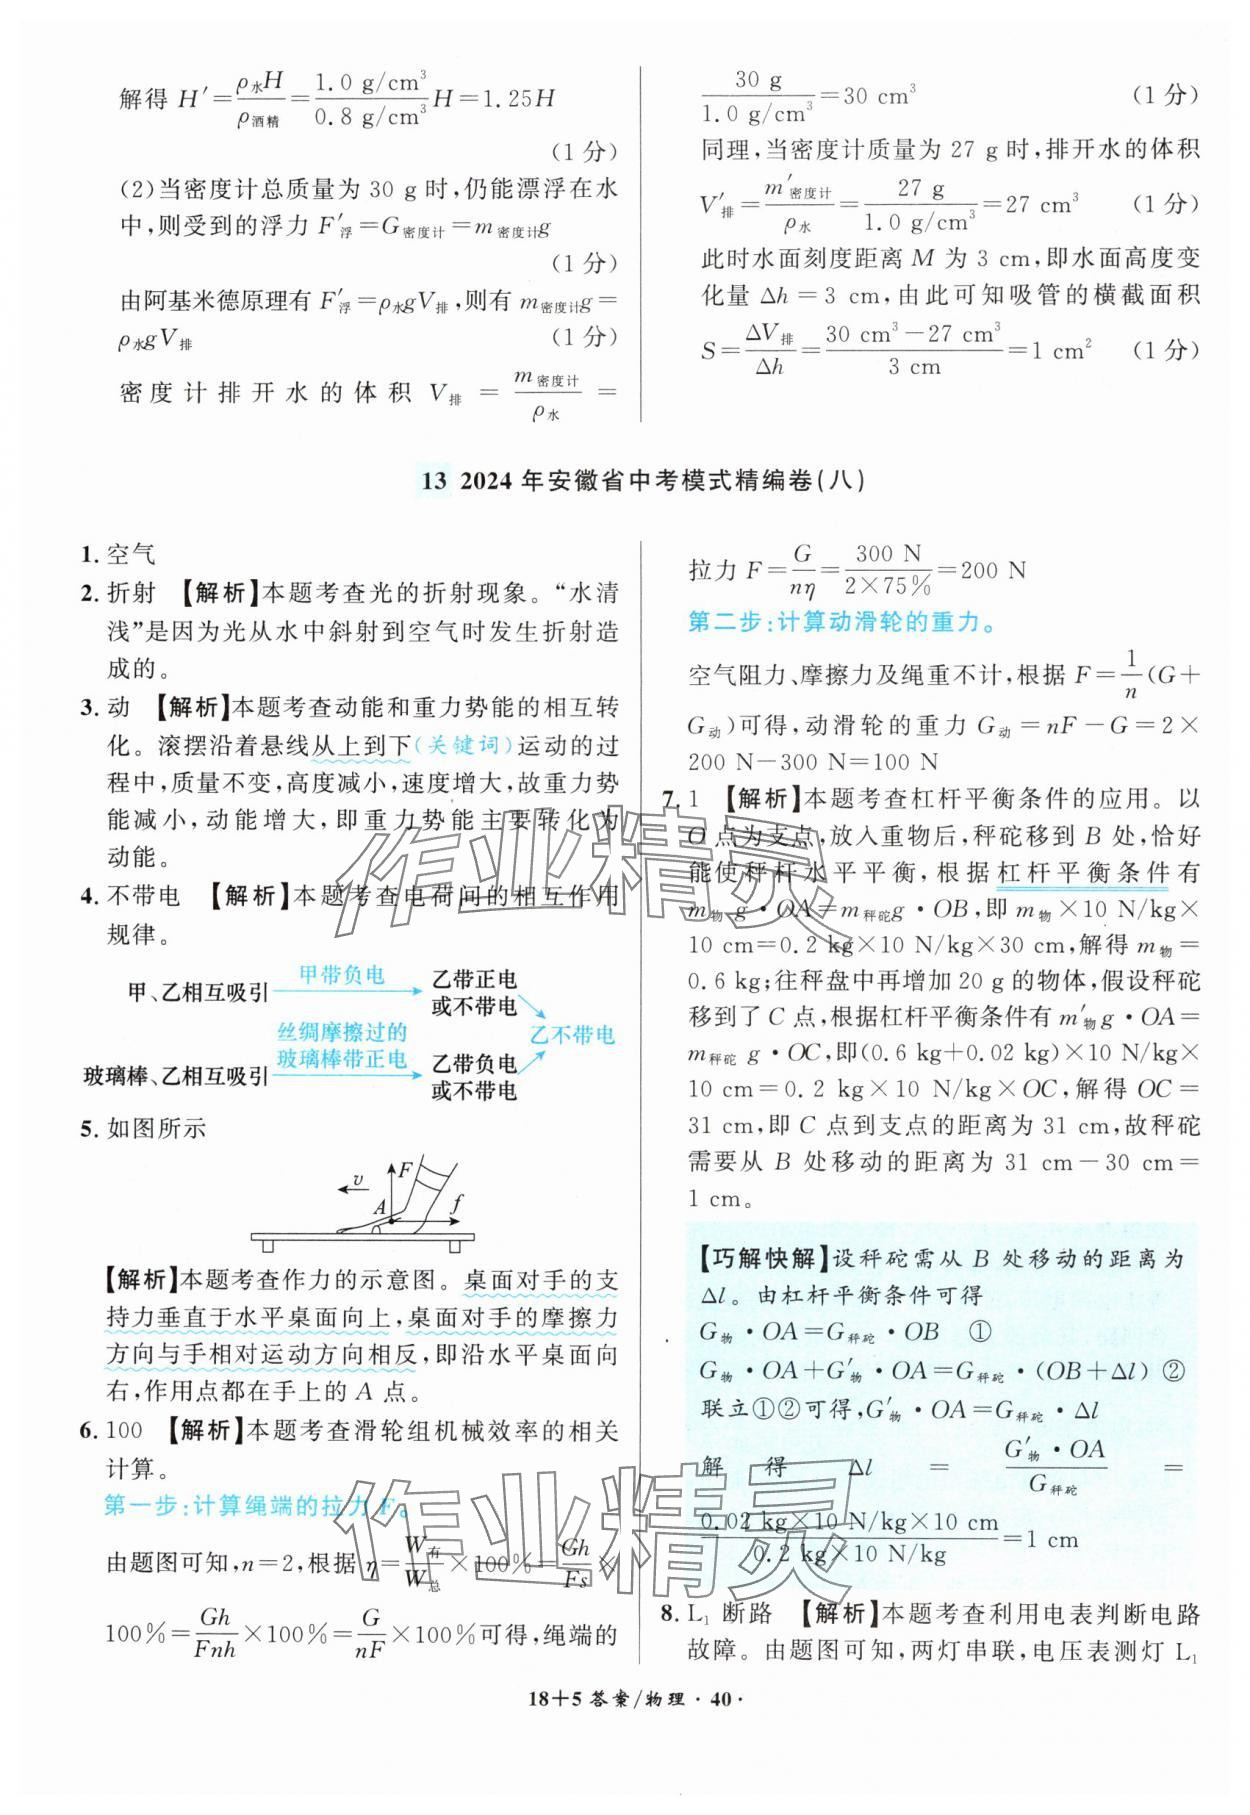 解得 H′=ρ水H/ρ酒精=1.0 g/cm³/0.8 g/cm³H=1.25H
(1 分)
(2)当密度计总质量为 30 g 时,仍能漂浮在水
中,则受到的浮力 F′浮=G密度计=m密度计g
(1 分)
由阿基米德原理有 F′浮=ρ水gV排,则有 m密度计g=
ρ水gV排 (1 分)
密度计排开水的体积 V排=m密度计/ρ水=
30 g/1.0 g/cm³=30 cm³ (1 分)
同理,当密度计质量为 27 g 时,排开水的体积
V′排=m′密度计/ρ水=27 g/1.0 g/cm³=27 cm³ (1 分)
此时水面刻度距离 M 为 3 cm,即水面高度变
化量 Δh=3 cm,由此可知吸管的横截面积
S=ΔV排/Δh=30 cm³-27 cm³/3 cm=1 cm² (1 分)
13 2024 年安徽省中考模式精编卷(八)
1. 空气
2. 折射 【解析】本题考查光的折射现象。“水清
浅”是因为光从水中斜射到空气时发生折射造
成的。
3. 动 【解析】本题考查动能和重力势能的相互转
化。滚摆沿着悬线从上到下(关键词)运动的过
程中,质量不变,高度减小,速度增大,故重力势
能减小,动能增大,即重力势能主要转化为
动能。
4. 不带电 【解析】本题考查电荷间的相互作用
规律。
甲、乙相互吸引 甲带负电 乙带正电
或不带电
丝绸摩擦过的
玻璃棒带正电
乙不带电
玻璃棒、乙相互吸引 乙带负电
或不带电
5. 如图所示
F
v
A
f
【解析】本题考查作力的示意图。桌面对手的支
持力垂直于水平桌面向上,桌面对手的摩擦力
方向与手相对运动方向相反,即沿水平桌面向
右,作用点都在手上的 A 点。
6. 100 【解析】本题考查滑轮组机械效率的相关
计算。
第一步:计算绳端的拉力 F。
由题图可知,n=2,根据 η=W有/W总×100%=Gh/Fs×
100%=Gh/Fnh×100%=G/nF×100%可得,绳端的
拉力 F=G/nη=300 N/2×75%=200 N
第二步:计算动滑轮的重力。
空气阻力、摩擦力及绳重不计,根据 F=1/n(G+
G动)可得,动滑轮的重力 G动=nF-G=2×
200 N-300 N=100 N
7. 1 【解析】本题考查杠杆平衡条件的应用。以
O 点为支点,放入重物后,秤砣移到 B 处,恰好
能使秤杆水平平衡,根据杠杆平衡条件有
m物g·OA=m秤砣g·OB,即 m物×10 N/kg×
10 cm=0.2 kg×10 N/kg×30 cm,解得 m物=
0.6 kg;往秤盘中再增加 20 g 的物体,假设秤砣
移到了 C 点,根据杠杆平衡条件有 m′物g·OA=
m秤砣g·OC,即(0.6 kg+0.02 kg)×10 N/kg×
10 cm=0.2 kg×10 N/kg×OC,解得 OC=
31 cm,即 C 点到支点的距离为 31 cm,故秤砣
需要从 B 处移动的距离为 31 cm-30 cm=
1 cm。
【巧解快解】设秤砣需从 B 处移动的距离为
Δl。由杠杆平衡条件可得
G物·OA=G秤砣·OB ①
G物·OA+G′物·OA=G秤砣·(OB+Δl) ②
联立①②可得,G′物·OA=G秤砣·Δl
解得 Δl=G′物·OA/G秤砣=
0.02 kg×10 N/kg×10 cm/0.2 kg×10 N/kg=1 cm
8. L₁ 断路 【解析】本题考查利用电表判断电路
故障。由题图可知,两灯串联,电压表测灯 L₁
18+5 答案/物理·40·
作业精灵
作业精灵